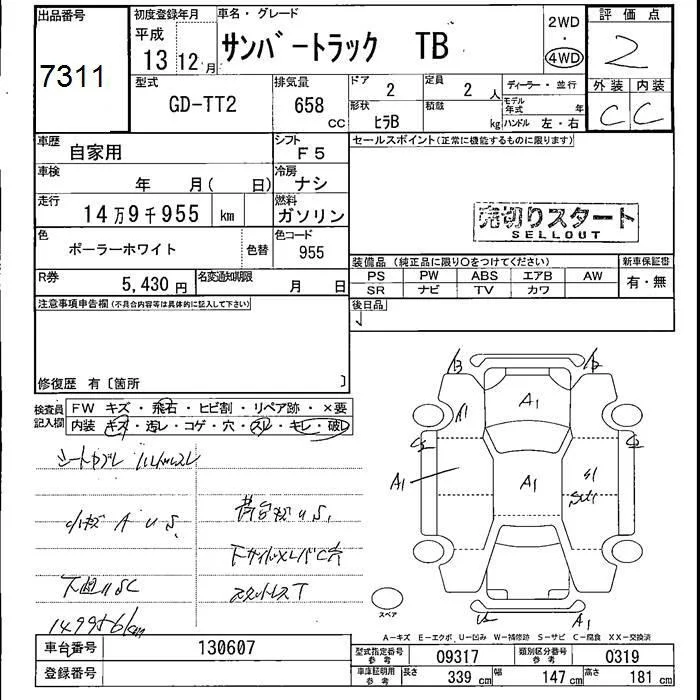 出品番号
7311
初度登録年月
平成
13 12月
車名・グレード
サンバートラック TB
2WD
・
4WD
評価点
2
外装 内装
C C
型式
GD-TT2
排気量
658
CC
ドア
2
定員
2 人
形状
ヒラB
積載
kg
ディーラー・並行
モデル
年式 年
ハンドル 左・右
車歴
自家用
シフト
F5
車検
年 月( 日)
冷房
ナシ
走行
14万9千955 km
燃料
ガソリン
色
ポーラーホワイト
色替
色コード
955
R券
5,430 円
名変通知期限
月 日
セールスポイント(正常に機能するものに限ります)
売切りスタート
SELLOUT
装備品(純正品に限り○をつけてください)
新車保証書
PS PW ABS エアB AW
SR ナビ TV カワ
有・無
注意事項申告欄(不具合内容等は具体的に記入して下さい)
後日品
修復歴 有〔箇所 〕
検査員
記入欄
FW キズ・飛石・ヒビ割・リペア跡・×要
内装 キズ・汚レ・コゲ・穴・スレ・キレ・破レ
小キズ A U S,
荷台キズ U S,
下廻り SC
A1
A1
A1
A1
A1
S1
スペア
A-キズ E-エクボ, U-凹み W-補修跡 S-サビ C-腐食 XX-交換済
車台番号
130607
登録番号
型式指定番号
参考
09317
類別区分番号
参考
0319
車庫証明用
参考
長さ
339 cm
幅
147 cm
高さ
181 cm